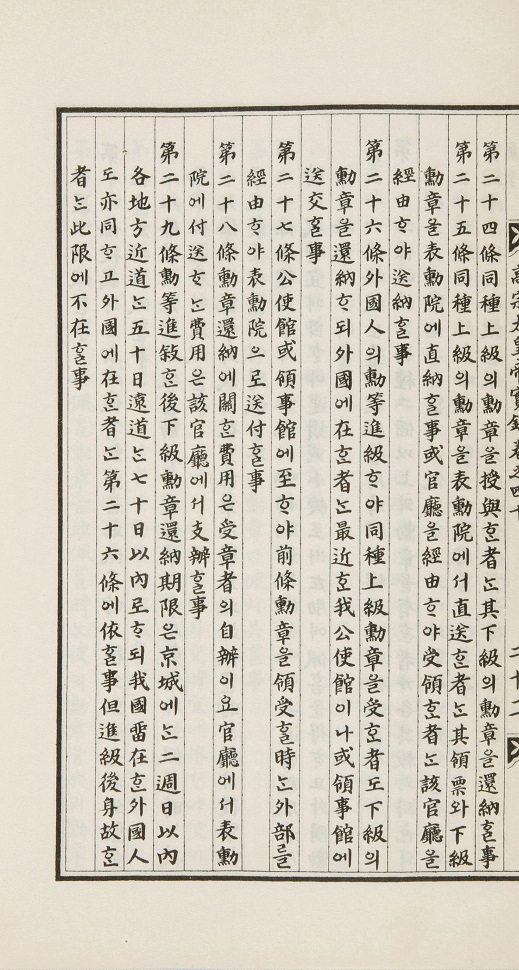 高宗太皇帝實錄卷之四十 二十二
第二十四條同種上級의勳章을授與ᄒᆞᆫ者ᄂᆞᆫ其下級의勳章을還納ᄒᆞᆯ事
第二十五條同種上級의勳章을表勳院에셔直送ᄒᆞᆫ者ᄂᆞᆫ其領票와下級
勳章을表勳院에直納ᄒᆞᆯ事或官廳을經由ᄒᆞ야受領ᄒᆞᆫ者ᄂᆞᆫ該官廳을
經由ᄒᆞ야送納ᄒᆞᆯ事
第二十六條外國人의勳等進級ᄒᆞ야同種上級勳章을受ᄒᆞᆫ者도下級의
勳章을還納ᄒᆞ되外國에在ᄒᆞᆫ者ᄂᆞᆫ最近ᄒᆞᆫ我公使館이나或領事館에
送交ᄒᆞᆯ事
第二十七條公使館或領事館에至ᄒᆞ야前條勳章을領受ᄒᆞᆯ時ᄂᆞᆫ外部를
經由ᄒᆞ야表勳院으로送付ᄒᆞᆯ事
第二十八條勳章還納에關ᄒᆞᆫ費用은受章者의自辦이요官廳에셔表勳
院에付送ᄒᆞᄂᆞᆫ費用은該官廳에셔支辦ᄒᆞᆯ事
第二十九條勳等進敍ᄒᆞᆫ後下級勳章還納期限은京城에ᄂᆞᆫ二週日以內
各地方近道ᄂᆞᆫ五十日遠道ᄂᆞᆫ七十日以內로ᄒᆞ되我國留在ᄒᆞᆫ外國人
도亦同ᄒᆞ고外國에在ᄒᆞᆫ者ᄂᆞᆫ第二十六條에依ᄒᆞᆯ事但進級後身故ᄒᆞᆫ
者ᄂᆞᆫ此限에不在ᄒᆞᆯ事